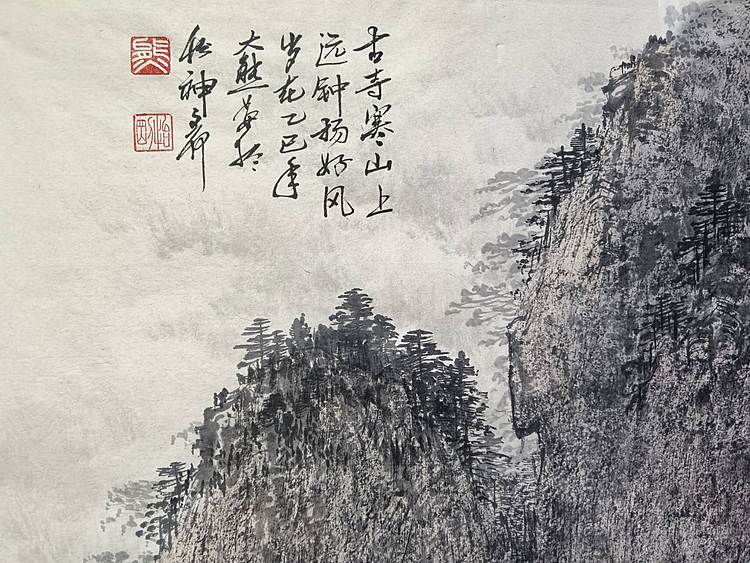 古寺寒山上
远钟扬好风
岁在乙巳年
大熊 于
神
熊